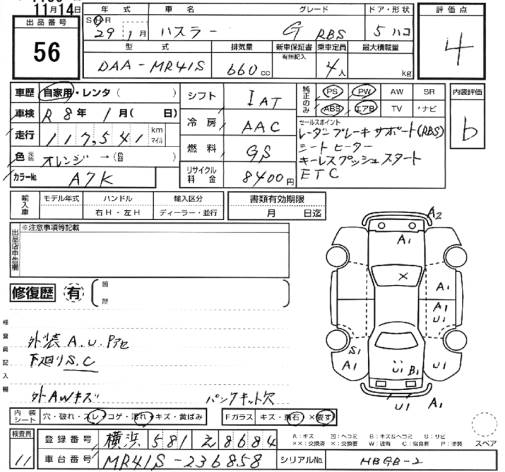 11月14日
出品番号
56
年式 車名 グレード ドア・形状
29年1月 ハスラー G RBS 5ハコ
型式 排気量 新車保証書 有無記入 乗車定員 最大積載量
DAA-MR41S 660cc 4人 kg
評価点
4
車歴 自家用・レンタ( )
車検 R8年1月( 日)
走行 117,541 km マイル
色 オレンジ→( )
カラーNo. A7K
シフト IAT
冷房 AAC
燃料 GS
リサイクル料金 8400円
純正のみ PS PW AW SR
ABS エアB TV ナビ
内装評価
b
セールスポイント
レーダーブレーキサポート(RBS)
シートヒーター
キーレスプッシュスタート
ETC
輸入車 モデル年式 ハンドル 輸入区分 書類有効期限
右H・左H ディーラー・並行 月 日迄
※注意事項等記載
修復歴 有 箇所
A2
A1
X
A1 A1
U1 U1
S1 A1
U1 B1
U1 A1
検査員記入欄
外装A.U.P他
下廻りS.C
外AWキズ パンクキット欠
内装シート 穴・破れ・スレ・コゲ・汚れ・キズ・黄ばみ Fガラス キズ・飛石・×要す
A:キズ U:ヘコミ B:キズ&ヘコミ S:サビ
スペア
検査員
11
登録番号 横浜 581 え 8684
車台番号 MR41S-236858 シリアルNo. HBGB-2